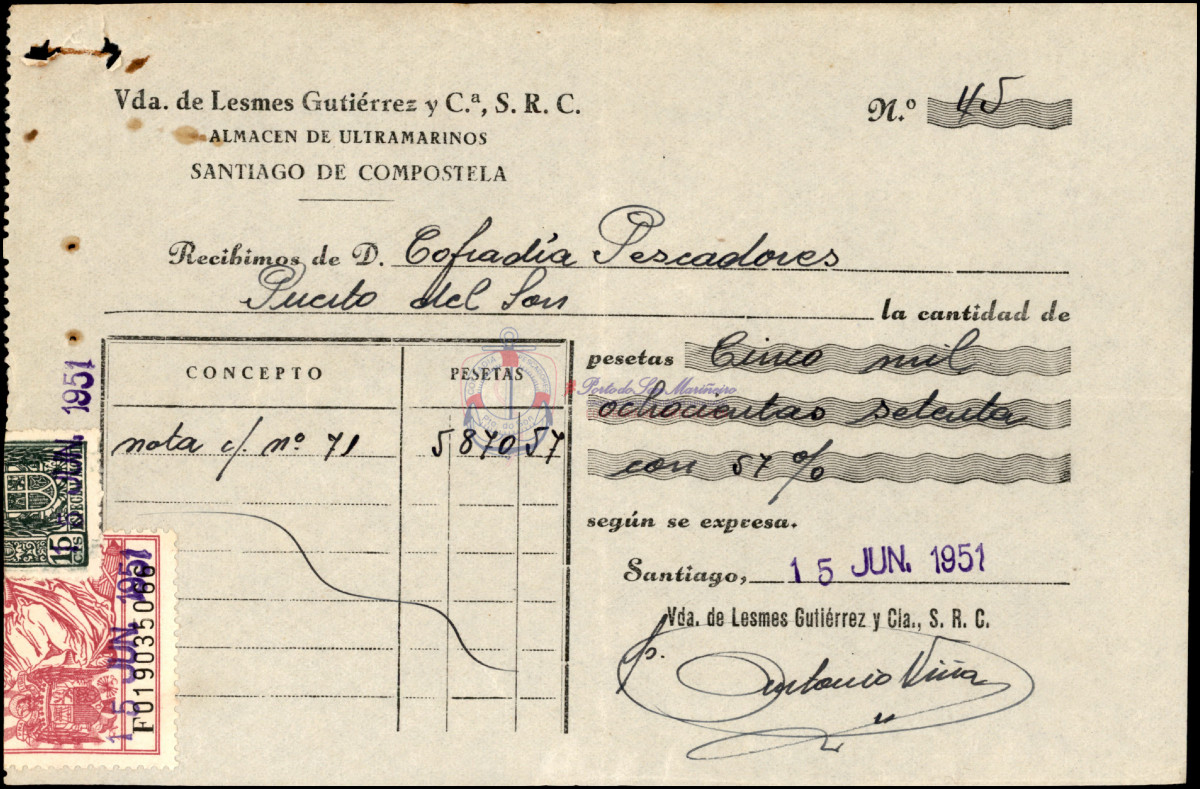 Vda. de Lesmes Gutiérrez y C.ª, S. R. C.
ALMACEN DE ULTRAMARINOS
SANTIAGO DE COMPOSTELA
N.º 45
Recibimos de D. Cofradía Pescadores
Puerto del Son la cantidad de
pesetas Cinco mil
ochocientas setenta
con 57 %
según se expresa.
Santiago, 15 JUN. 1951
Vda. de Lesmes Gutiérrez y Cia., S. R. C.
p. Antonio Viña
CONCEPTO PESETAS
nota c/. nº 71 5870 57
Porto do Son Mariñeiro
15 JUN. 1951
15 CTS
15 JUN. 1951
F019035066